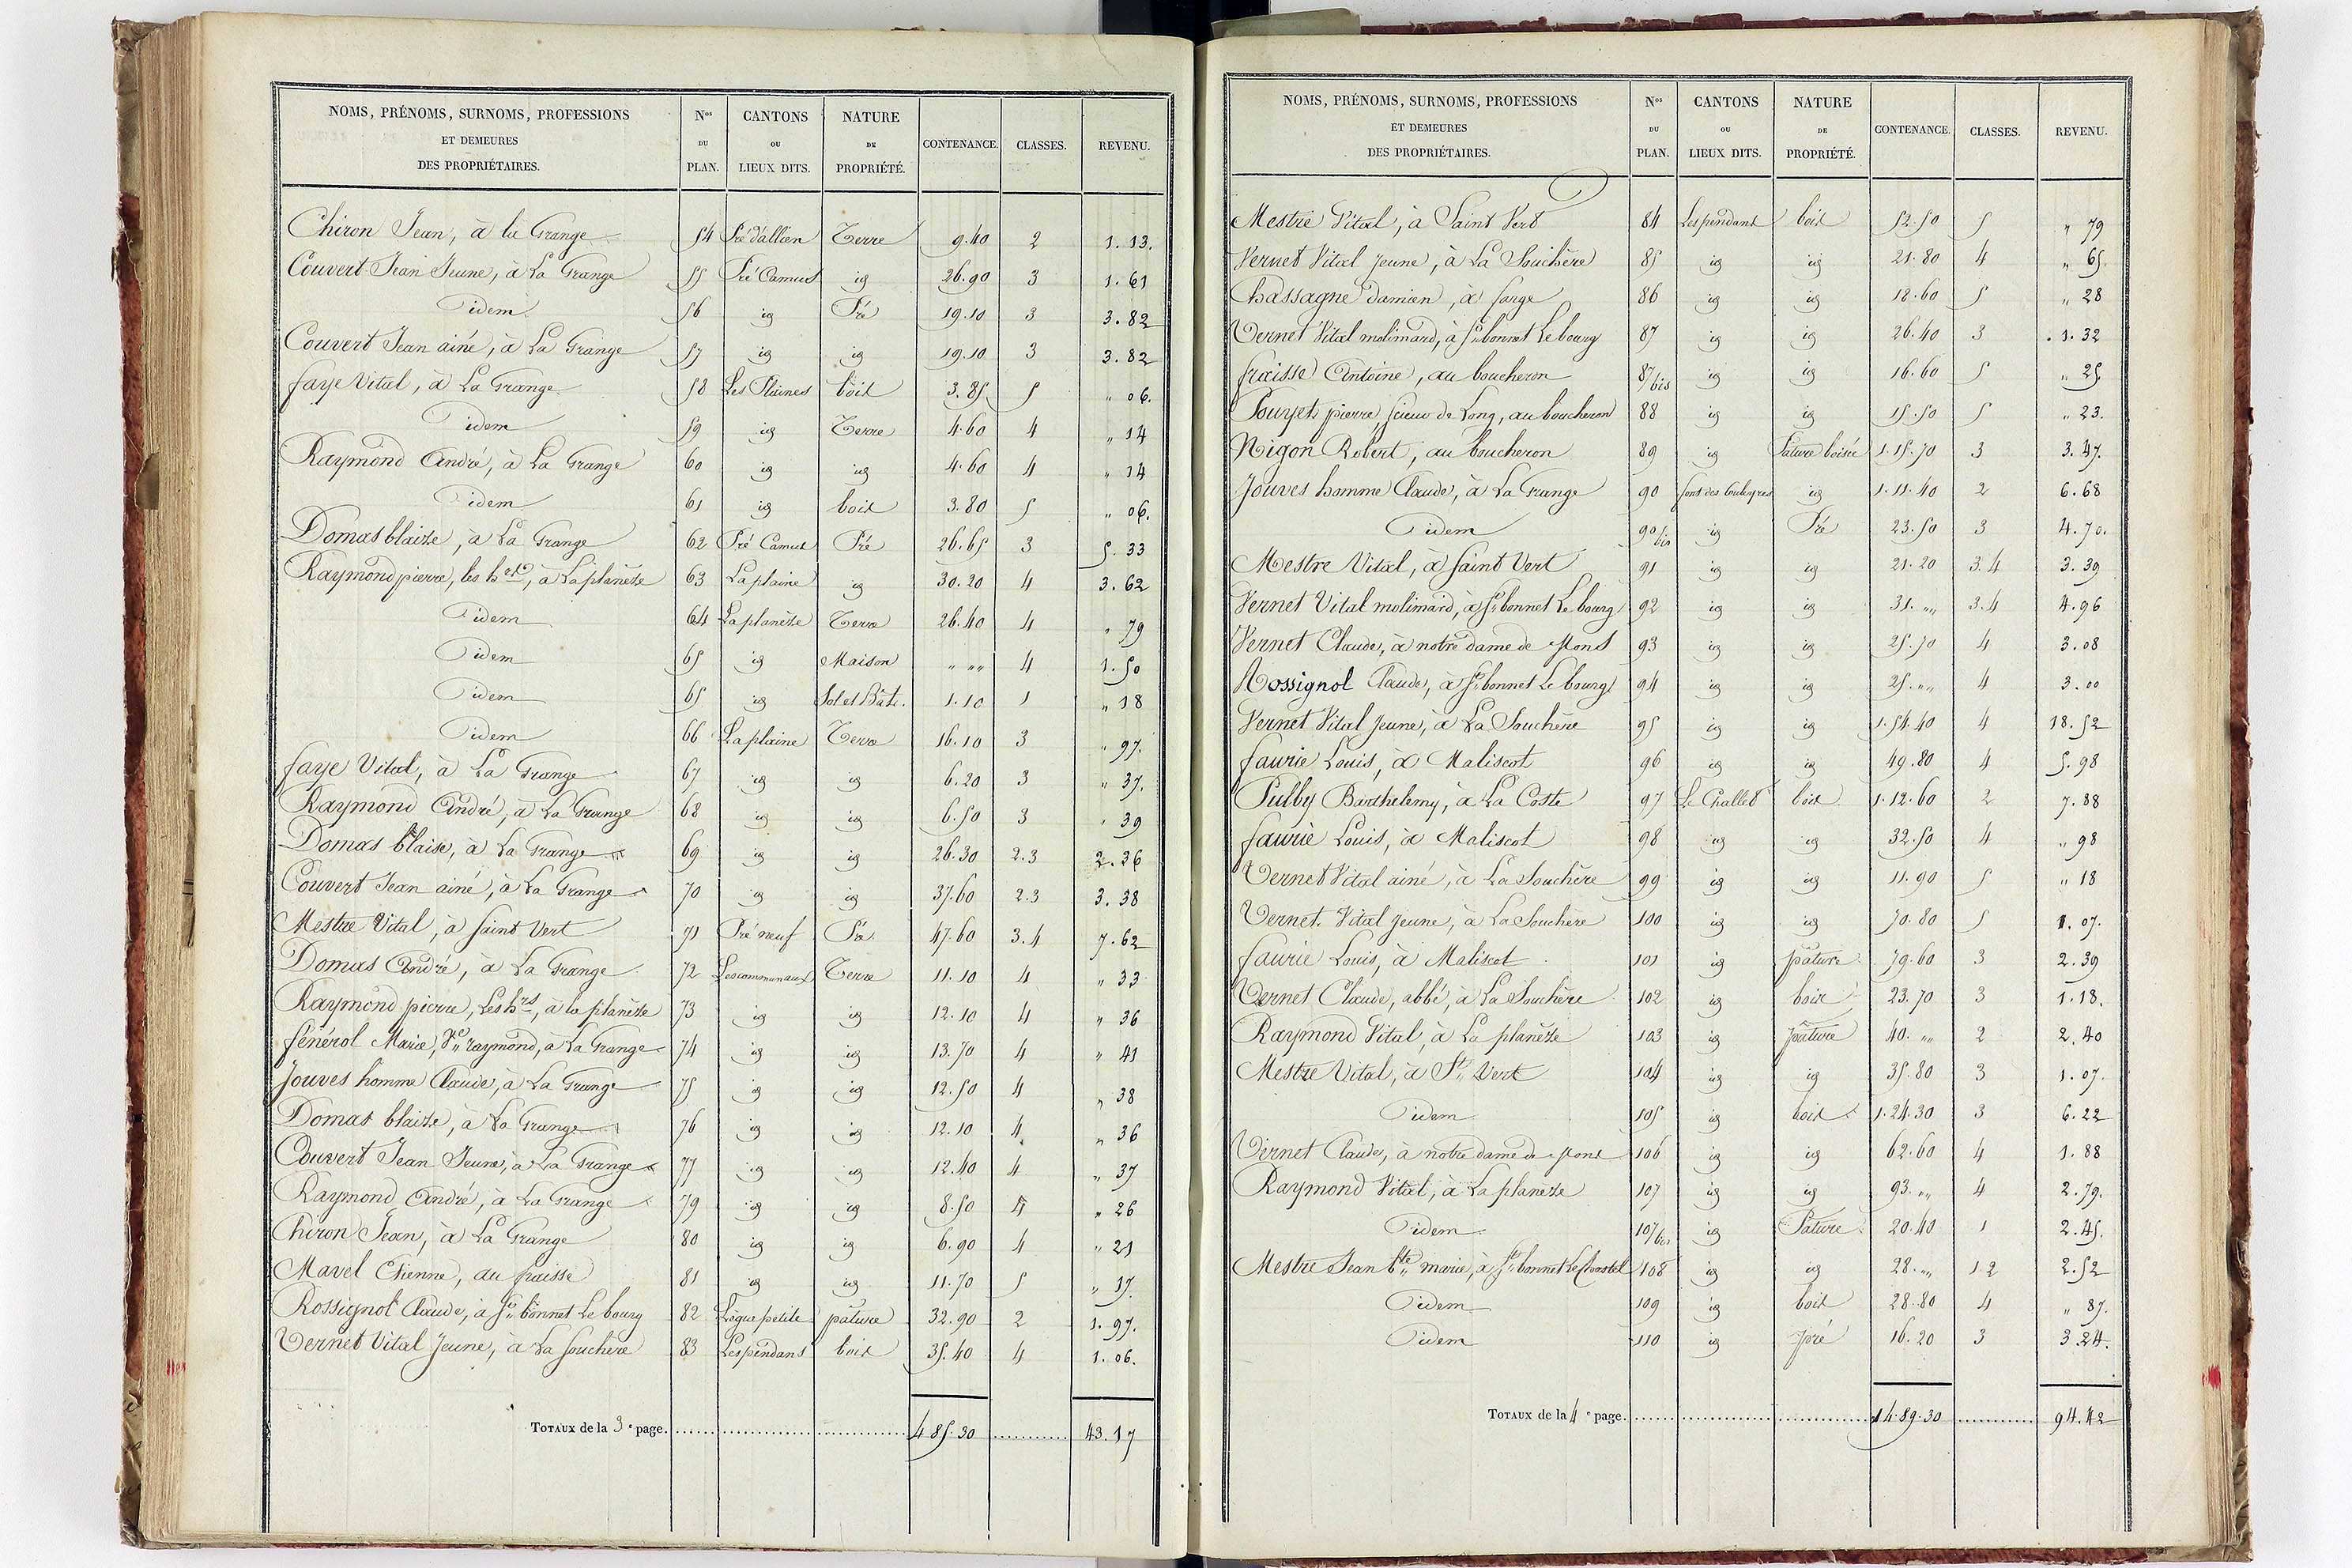 NOMS, PRÉNOMS, SURNOMS, PROFESSIONS ET DEMEURES DES PROPRIÉTAIRES. Nos DU PLAN. CANTONS OU LIEUX DITS. NATURE DE PROPRIÉTÉ. CONTENANCE. CLASSES. REVENU.
Chiron Jean, à la Grange 54 Pré d'allien Terre 9.40 2 1.13.
Couvert Jean Jeune, à La Grange 55 Pré Camus id 26.90 3 1.61
idem 56 id Pré 19.10 3 3.82
Couvert Jean ainé, à La Grange 57 id id 19.10 3 3.82
faye Vital, à La Grange 58 Les Plaines bois 3.85 5 " 06.
idem 59 id Terre 4.60 4 " 14
Raymond André, à La Grange 60 id id 4.60 4 " 14
idem 61 id bois 3.80 5 " 06.
Domas blaize, à La Grange 62 Pré Camus Pré 26.65 3 5.33
Raymond pierre, les hers, à La planèze 63 La plaine id 30.20 4 3.62
idem 64 La planèze Terre 26.40 4 " 79
idem 65 id Maison " "" 4 1.50
idem 65 id Sol et Bâti. 1.10 1 " 18
idem 66 La plaine Terre 16.10 3 " 97.
faye Vital, à La Grange 67 id id 6.20 3 " 37.
Raymond André, à La Grange 68 id id 6.50 3 " 39
Domas blaise, à La Grange 69 id id 26.30 2.3 2.36
Couvert Jean ainé, à La Grange 70 id id 37.60 2.3 3.38
Mestre Vital, à saint Vert 71 Pré neuf Pré 47.60 3.4 7.62
Domas André, à La Grange 72 Les communaux Terre 11.10 4 " 33
Raymond pierre, Les hrs, à la planèze 73 id id 12.10 4 " 36
fénérol Marie, Ve raymond, à La Grange 74 id id 13.70 4 " 41
Jouves homme Claude, à La Grange 75 id id 12.50 4 " 38
Domas blaize, à La Grange 76 id id 12.10 4 " 36
Couvert Jean Jeune, à La Grange 77 id id 12.40 4 " 37
Raymond André, à La Grange 79 id id 8.50 4 " 26
Chiron Jean, à La Grange 80 id id 6.90 4 " 21
Mavel Etienne, au fraisse 81 id id 11.70 5 " 17.
Rossignol Claude, à St bonnet Le bourg 82 Ligue petite pâture 32.90 2 1.97.
Vernet Vital Jeune, à La souchère 83 Les pendans bois 35.40 4 1.06.
TOTAUX de la 3e page. 4 85.30 43.17
NOMS, PRÉNOMS, SURNOMS, PROFESSIONS ET DEMEURES DES PROPRIÉTAIRES. Nos DU PLAN. CANTONS OU LIEUX DITS. NATURE DE PROPRIÉTÉ. CONTENANCE. CLASSES. REVENU.
Mestre Vital, à Saint Vert 84 Les pendans bois 52.50 5 " 79
Vernet Vital jeune, à La Souchère 85 id id 21.80 4 " 65.
Chassagne damien, à farge 86 id id 18.60 5 " 28
Vernet Vital molimard, à St bonnet Le bourg 87 id id 26.40 3 1.32
fraisse Antoine, au boucheron 87 bis id id 16.60 5 " 25.
Pouyet pierre, au boucheron 88 id id 15.50 5 " 23.
Nigon Robert, au boucheron 89 id Pature boisée 1.15.70 3 3.47.
Jouves homme Claude, à La Grange 90 font des id 1.11.40 2 6.68
idem 90 bis id Pré 23.50 3 4.70.
Mestre Vital, à saint Vert 91 id id 21.20 3.4 3.39
Vernet Vital molimard, à St bonnet Le bourg 92 id id 31. "" 3.4 4.96
Vernet Claude, à notre dame de Mons 93 id id 25.70 4 3.08
Rossignol Claude, à St bonnet Le bourg 94 id id 25. "" 4 3.00
Vernet Vital jeune, à La Souchère 95 id id 1.54.40 4 18.52
faurie Louis, à Maliscot 96 id id 49.80 4 5.98
Pulby Barthelemy, à La Coste 97 Le Challet bois 1.12.60 2 7.88
faurie Louis, à Maliscot 98 id id 32.50 4 " 98
Vernet Vital ainé, à La Souchère 99 id id 11.90 5 " 18
Vernet Vital jeune, à La Souchère 100 id id 70.80 5 1.07.
faurie Louis, à Maliscot 101 id pâture 79.60 3 2.39
Vernet Claude, abbé, à La Souchère 102 id bois 23.70 3 1.18.
Raymond Vital, à La planèze 103 id pâture 40. "" 2 2.40
Mestre Vital, à St Vert 104 id id 35.80 3 1.07.
idem 105 id bois 1.24.30 3 6.22
Vernet Claude, à notre dame de Mons 106 id id 62.60 4 1.88
Raymond Vital, à La planèze 107 id id 93. "" 4 2.79.
idem 107 bis id Pature 20.40 1 2.45.
Mestre Jean bte marie, à St bonnet Le Chastel 108 id id 28. "" 1 2 2.52
idem 109 id bois 28.80 4 " 87.
idem 110 id pré 16.20 3 3.24.
TOTAUX de la 4e page. 14.89.30 94.42